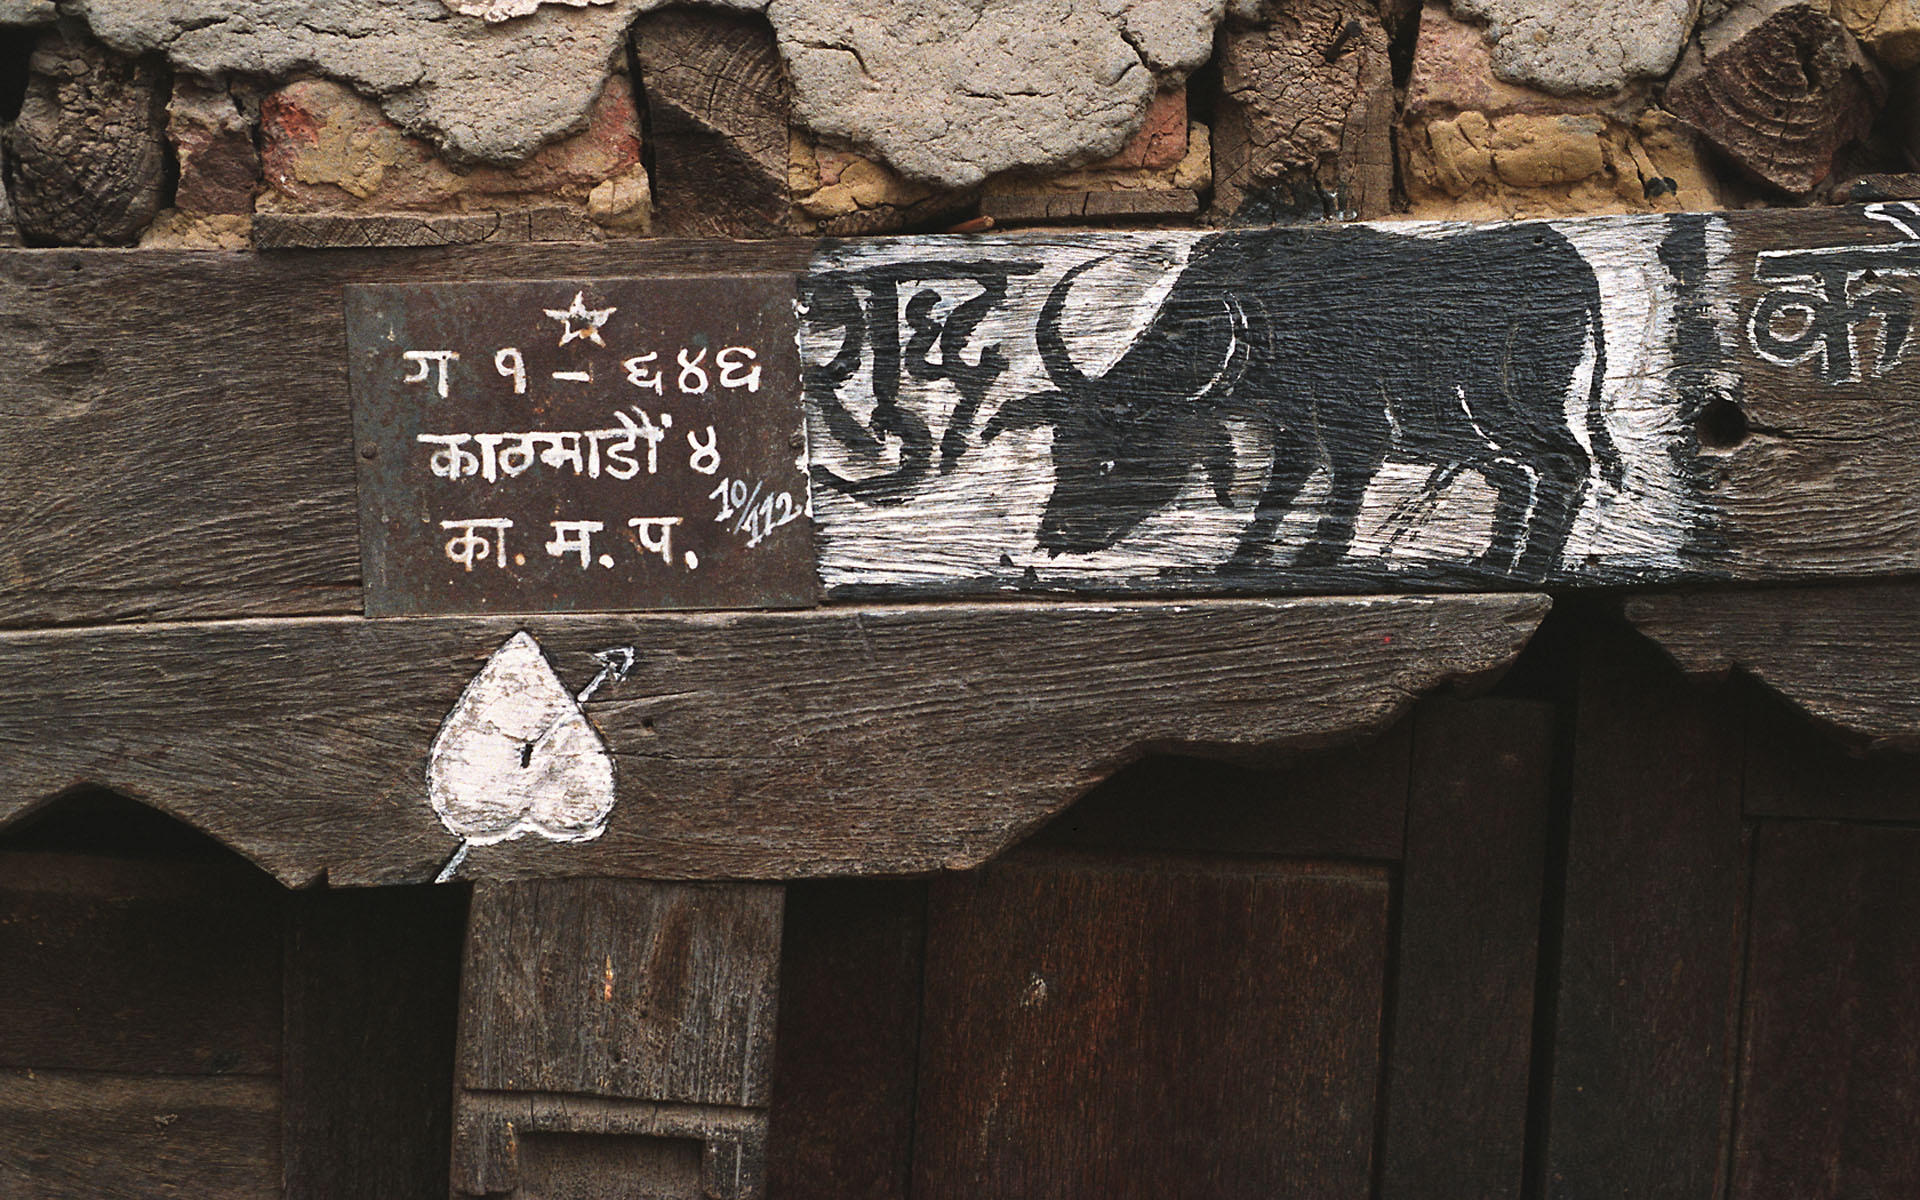 ग १ - ६४६
काठमाडौं ४
10/112
का. म. प.
शुद्ध